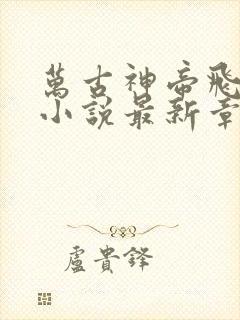 萬古神帝飛
小說最新章
盧貴鋒